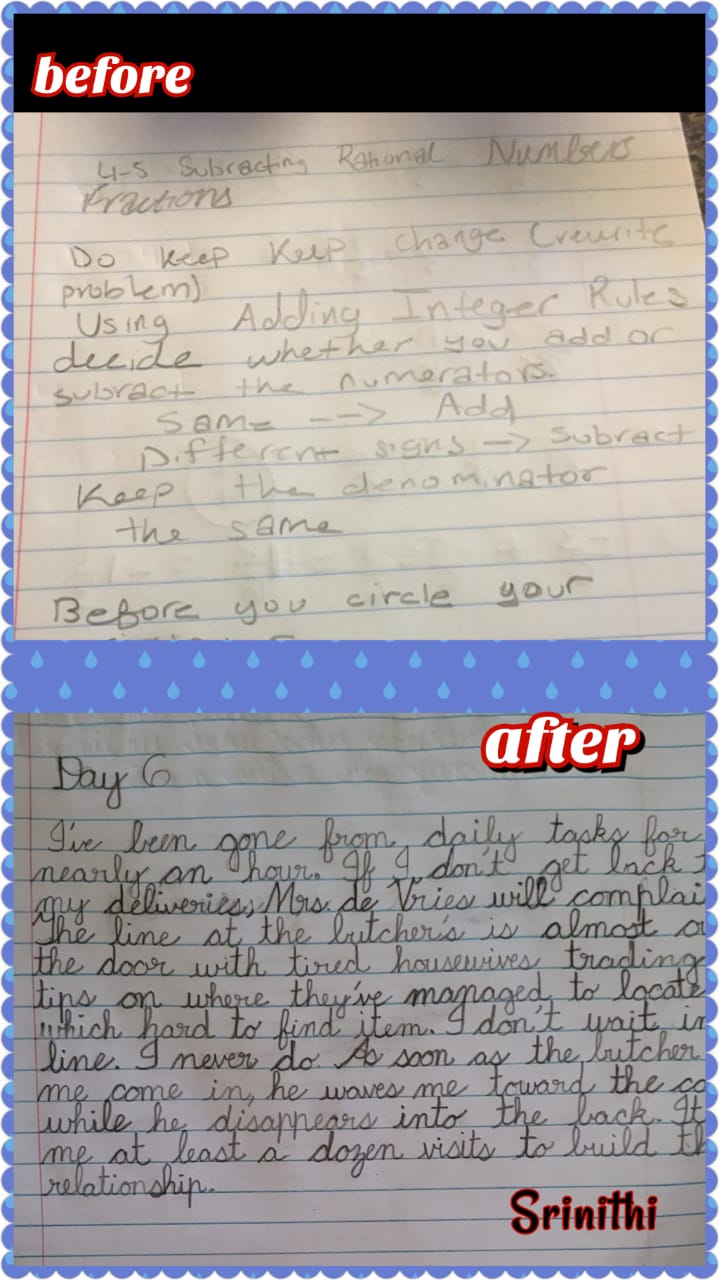 before
4-5 Subracting Rational Numbers
Fractions
Do Keep Keep change (rewrite
problem)
Using Adding Integer Rules
decide whether you add or
subract the numerators.
Same --> Add
Different signs -> subract
Keep the denominator
the same
Before you circle your
after
Day 6
I've been gone from daily tasks for
nearly an hour. If I don't get back
my deliveries, Mrs. de Vries will complai
The line at the butcher's is almost
the door with tired housewives trading
tips on where they've managed to locate
which hard to find item. I don't wait in
line. I never do. As soon as the butcher
me come in, he waves me toward the co
while he disappears into the back. It
me at least a dozen visits to build th
relationship.
Srinithi